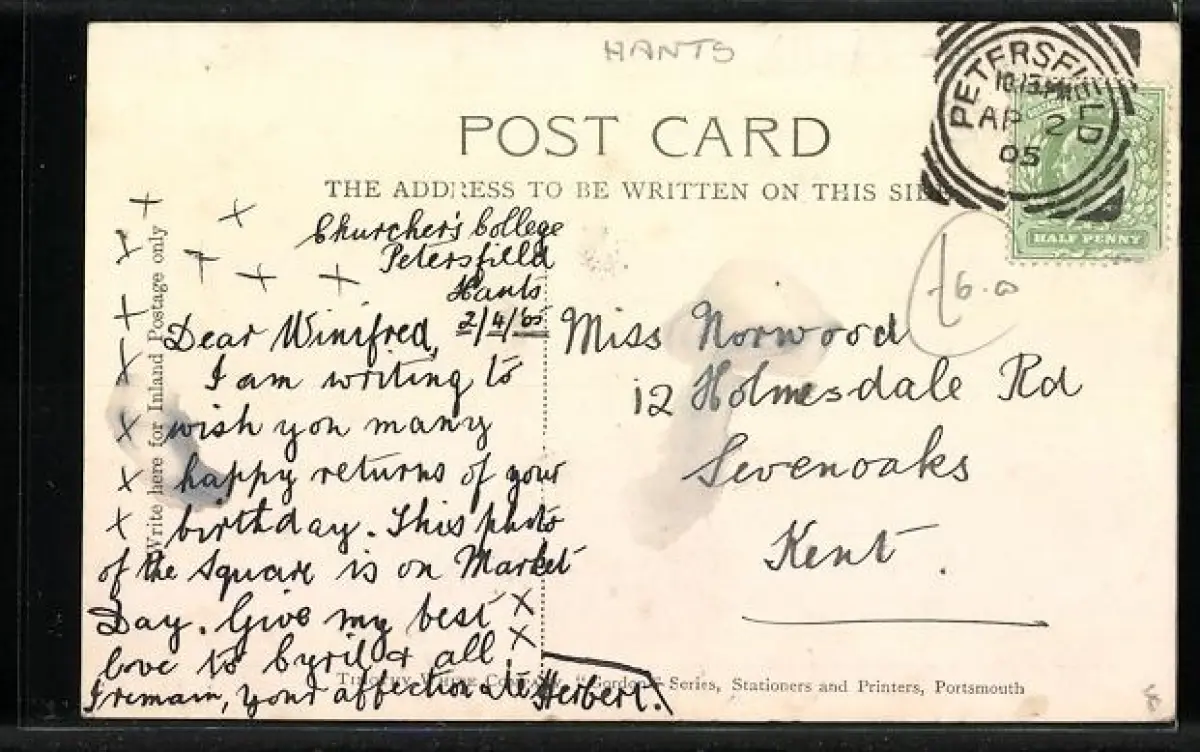 HANTS
PETERSFIELD
AP 2
05
POST CARD
THE ADDRESS TO BE WRITTEN ON THIS SIDE
HALF PENNY
Write here for Inland Postage only
Churcher's College
Petersfield
Hants
2/4/05
Dear Winifred,
I am writing to
wish you many
happy returns of your
birthday. This photo
of the Square is on Market
Day. Give my best
love to Cyril & all
I remain, your affectionate Herbert.
Miss Norwood
12 Holmesdale Rd
Sevenoaks
Kent.
Timothy White Company, "Gordon" Series, Stationers and Printers, Portsmouth